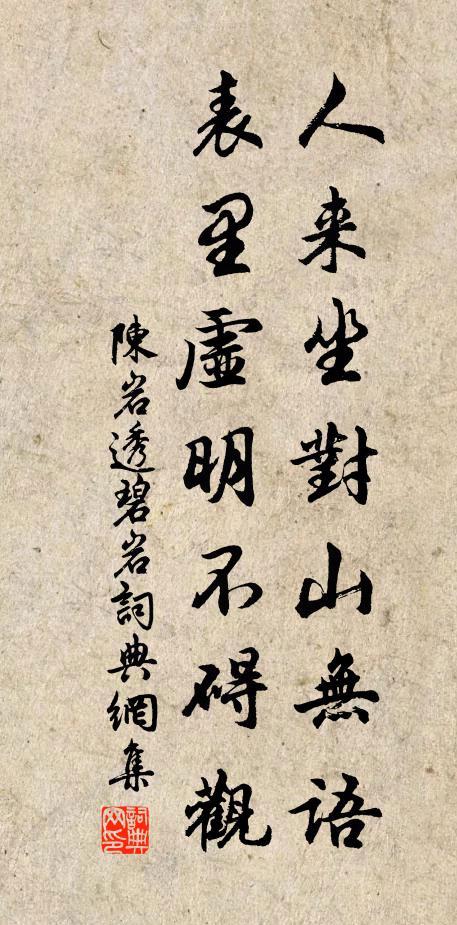 人来坐對山無語
表里虛明不碍觀
陳岩透碧岩詞典網集
詞典
网印